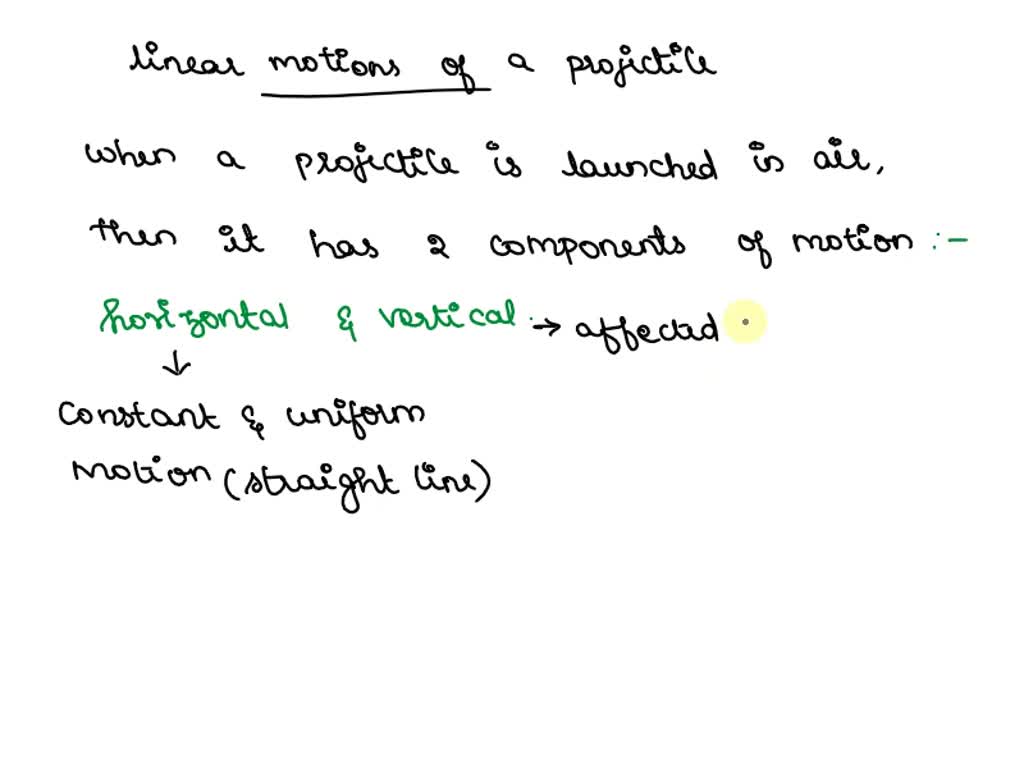 linear motions of a projectile
when a projectile is launched in air,
then it has 2 components of motion :-
horizontal & vertical. → affected
↓
constant & uniform
motion (straight line)